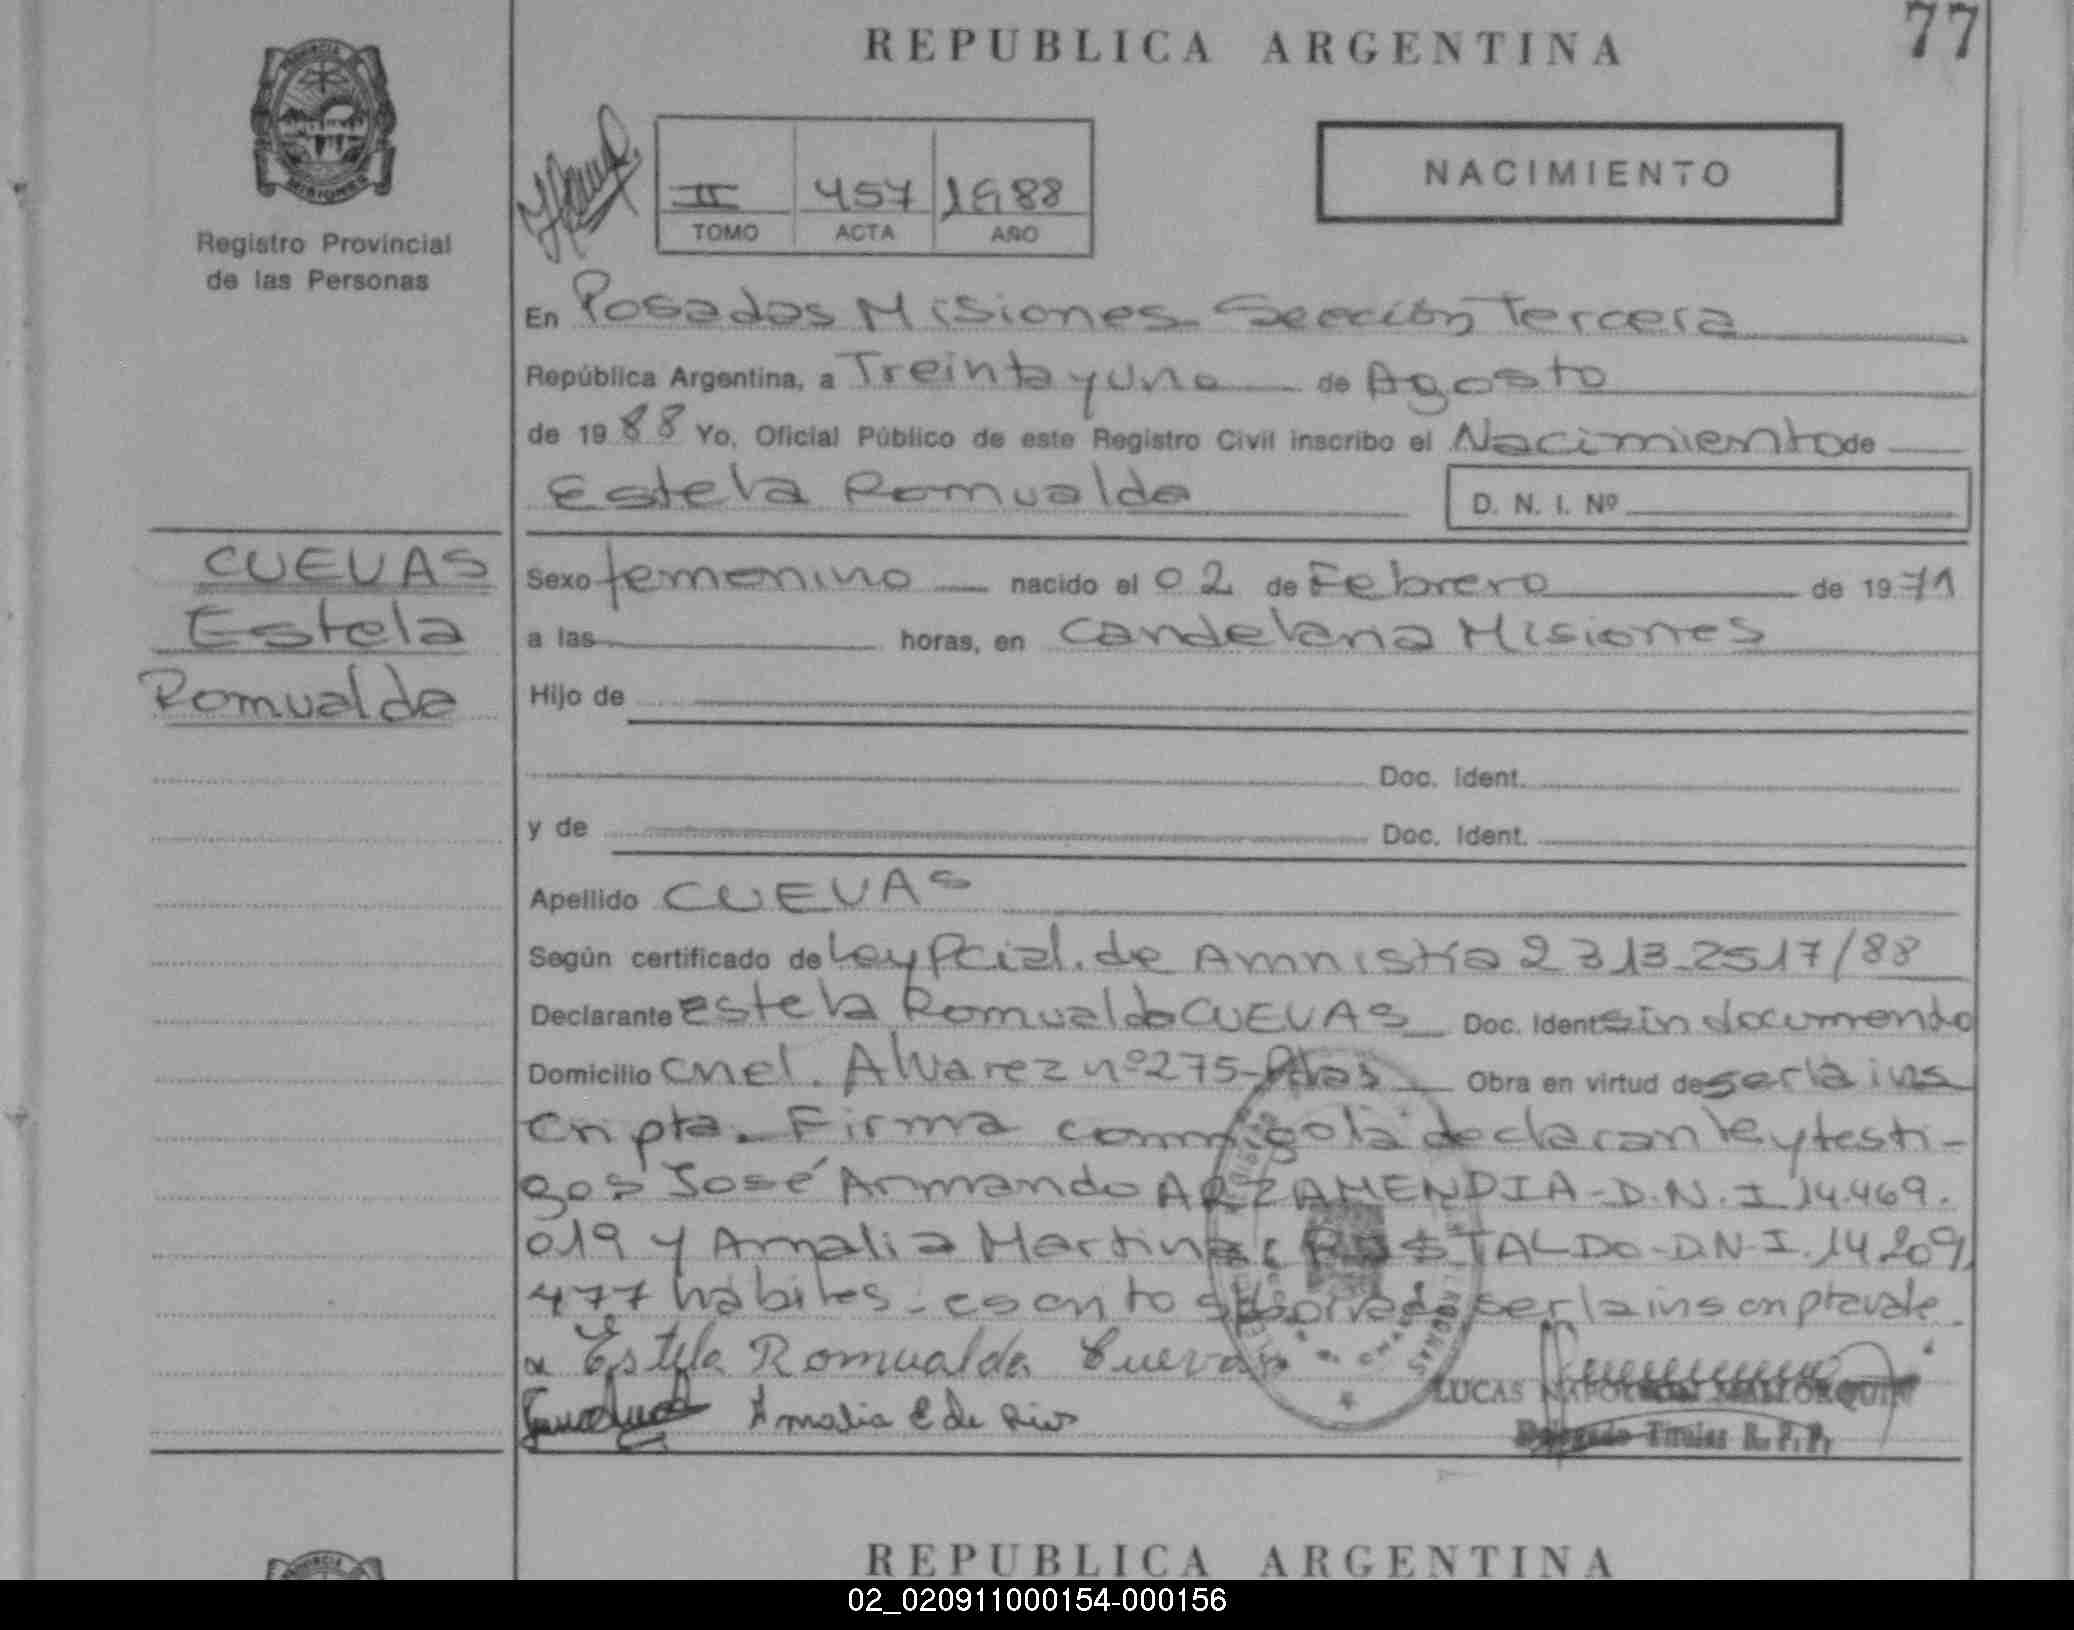 REPUBLICA ARGENTINA
77
PROVINCIA
MISIONES
Registro Provincial
de las Personas
II 457 1988
TOMO ACTA AÑO
NACIMIENTO
En Posadas Misiones Sección Tercera
República Argentina, a Treinta y uno de Agosto
de 1988 Yo, Oficial Público de este Registro Civil inscribo el Nacimiento de
Estela Romualda
D. N. I. Nº
CUEVAS
Estela
Romualda
Sexo femenino nacido el 02 de Febrero de 1971
a las horas, en Candelaria Misiones
Hijo de
Doc. Ident.
y de Doc. Ident.
Apellido CUEVAS
Según certificado de Ley Pcial. de Amnistía 2313-2517/88
Declarante Estela Romualda CUEVAS Doc. Ident. sin documento
Domicilio Cnel. Alvarez nº 275-Pdas Obra en virtud de ser la ins
cripta. Firma conmigo la declarante y testi-
gos José Armando ARZAMENDIA-D.N.I 14.469.
019 y Amalia Martina D.N.I. 14.209
477 habiles. escrito s/borrado ser la inscripta vale.
x Estela Romualda Cuevas
Amalia E de Rios
LUCAS NAPOLEON MALLORQUIN
Delegado Titular R. P. P.
REPUBLICA ARGENTINA
02_020911000154-000156